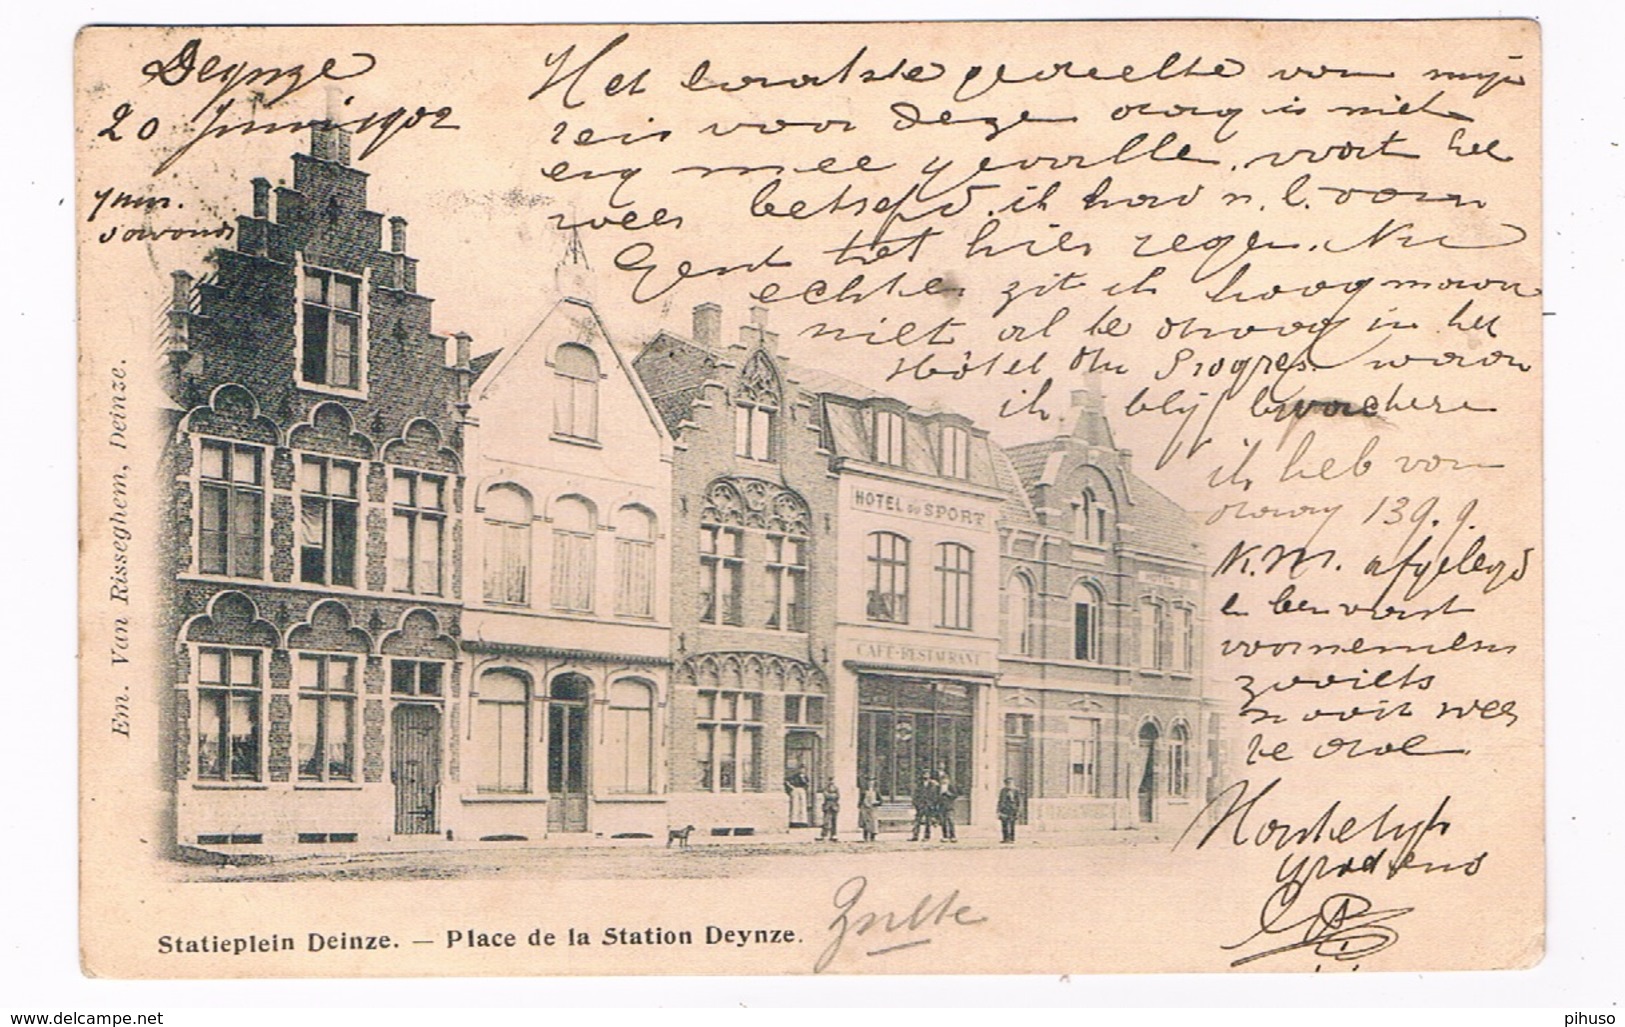 Deynze
20 Juni 1902
7 uur.
's avonds
Het laatste gedeelte van mijn
reis voor deze dag is niet
erg mee gevallen, wat het
weer betreft. ik had n.l. van
Gent tot hier regen. Nu
echter zit ik hoog maar
niet al te droog in het
Hôtel du Progres waar
ik blijf
ik heb van
daag 139.9
K.M. afgelegd
en ben vast
voornemens
zooiets
nooit weer
te doen.
Hartelijk
gredens
Em. Van Risseghem, Deinze.
HOTEL DU SPORT
CAFÉ-RESTAURANT
HOTEL
Statieplein Deinze. — Place de la Station Deynze.
Zulte
www.delcampe.net
pihuso